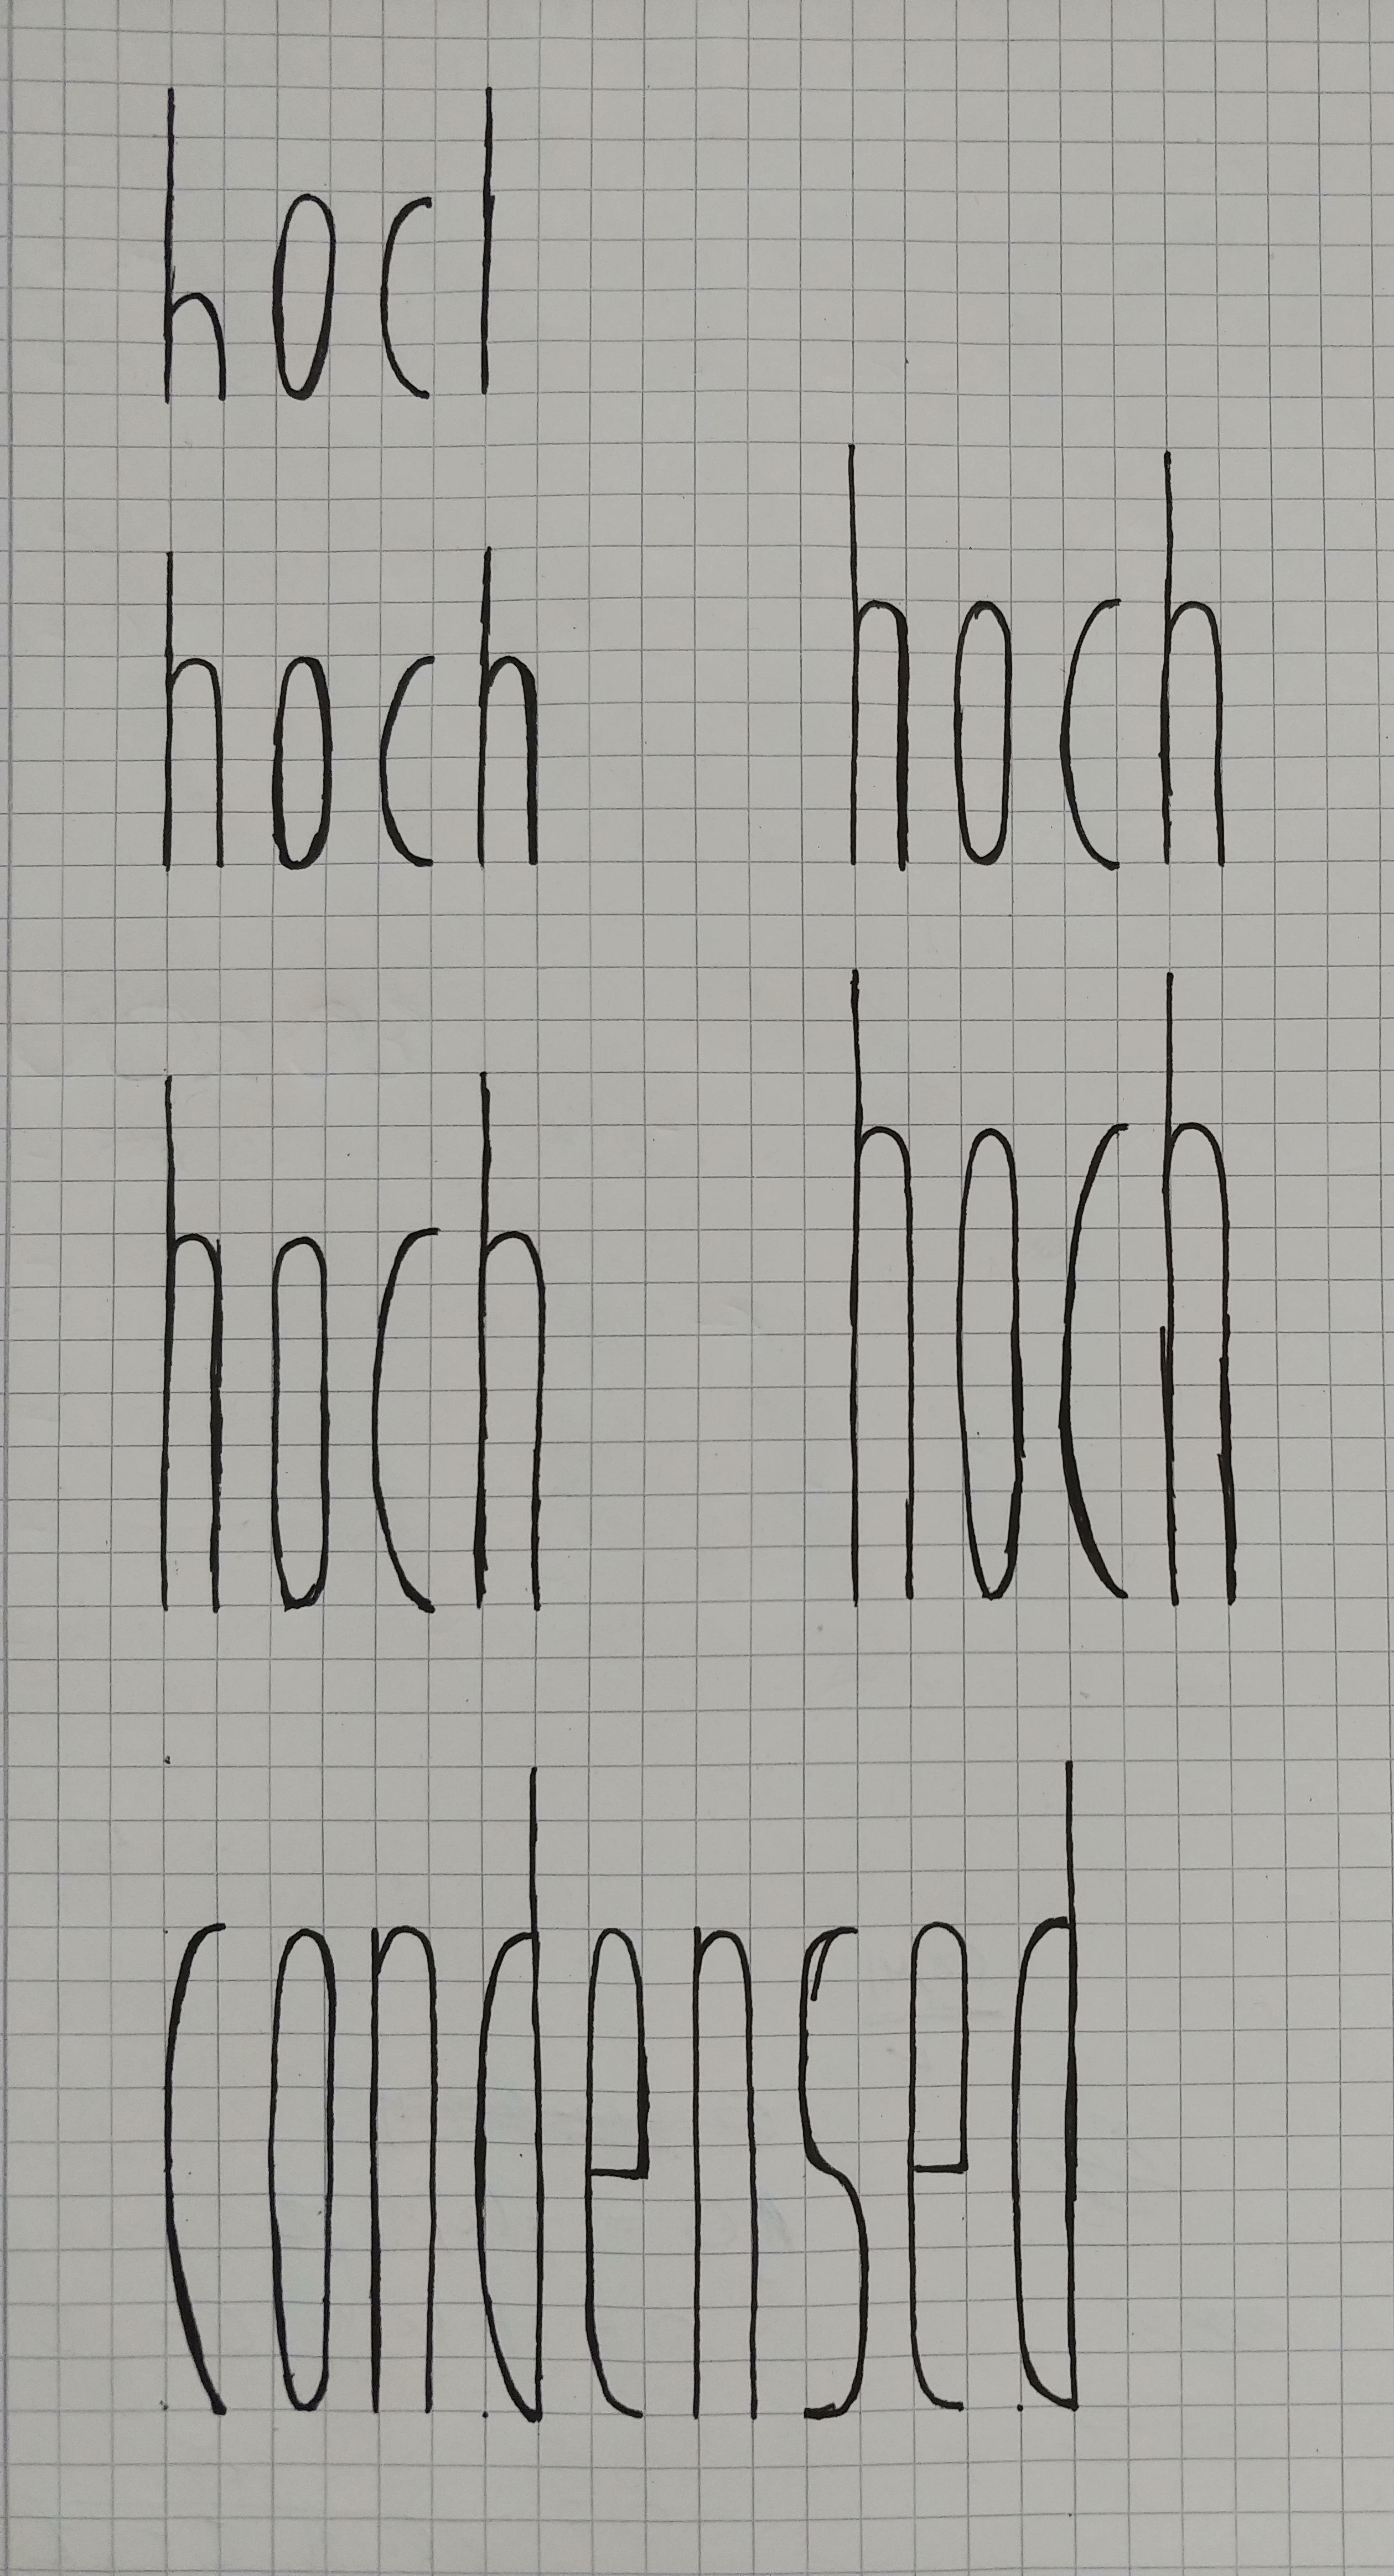 hocl
hoch hoch
hoch hoch
condensed